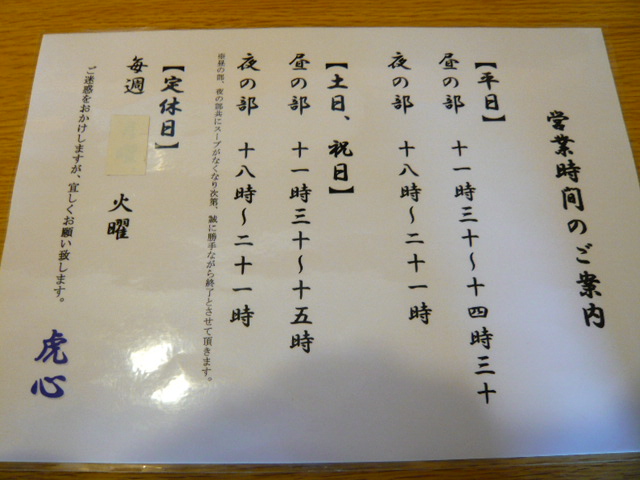 営業時間のご案内
【平日】
昼の部 十一時三十〜十四時三十
夜の部 十八時〜二十一時
【土日、祝日】
昼の部 十一時三十〜十五時
夜の部 十八時〜二十一時
昼の部、夜の部共にスープがなくなり次第、誠に勝手ながら終了とさせて頂きます。
【定休日】
毎週 火曜
ご迷惑をおかけしますが、宜しくお願い致します。
虎心